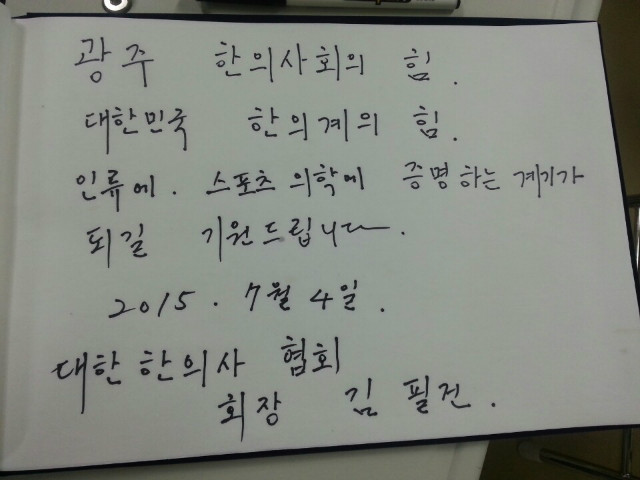 광주 한의사회의 힘.
대한민국 한의계의 힘.
인류에. 스포츠 의학에 증명하는 계기가
되길 기원드립니다.
2015. 7월 4일.
대한 한의사 협회
회장 김 필건.